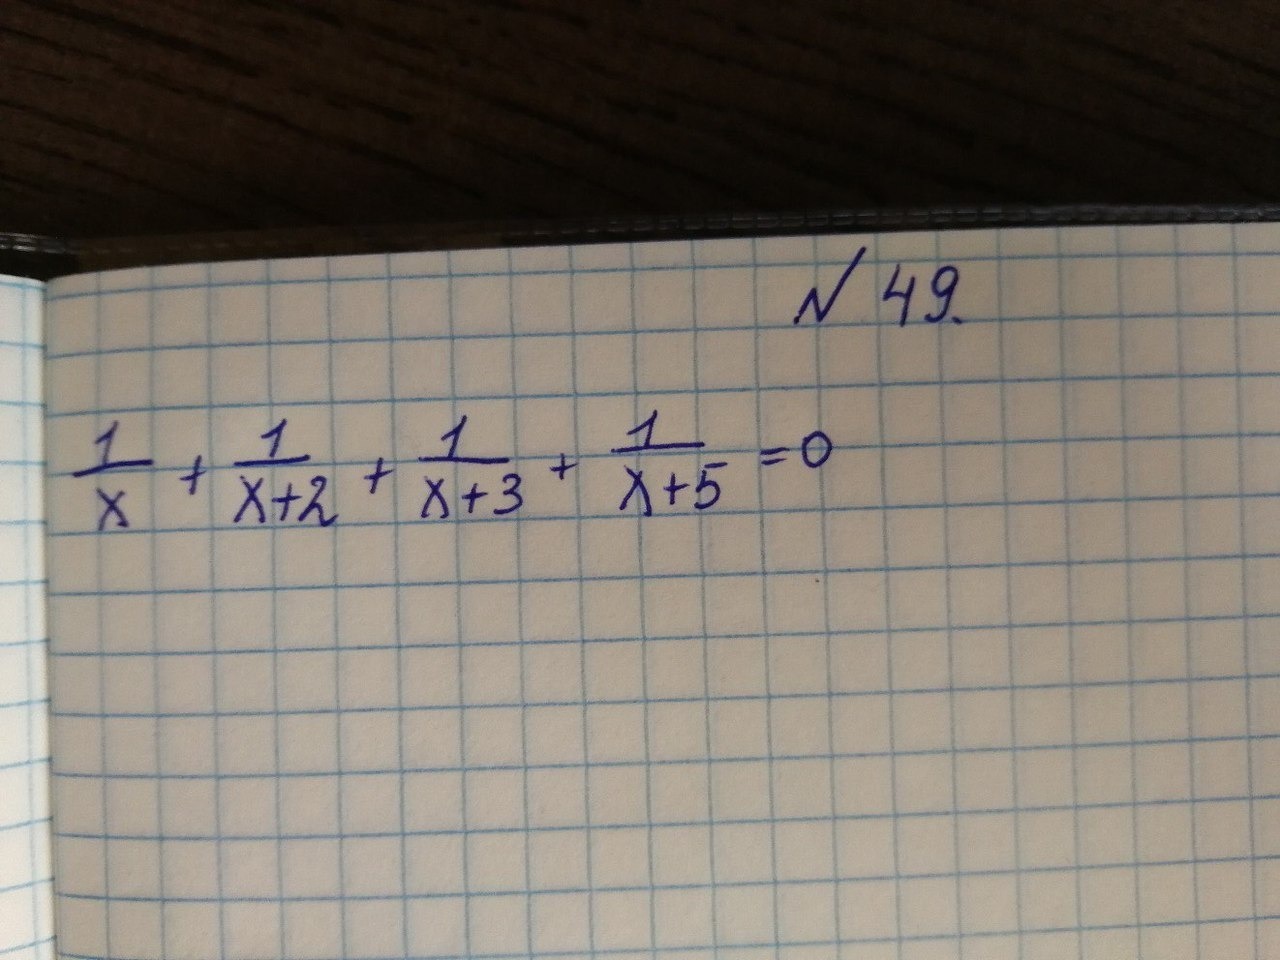 № 49.
1/x + 1/(x+2) + 1/(x+3) + 1/(x+5) = 0